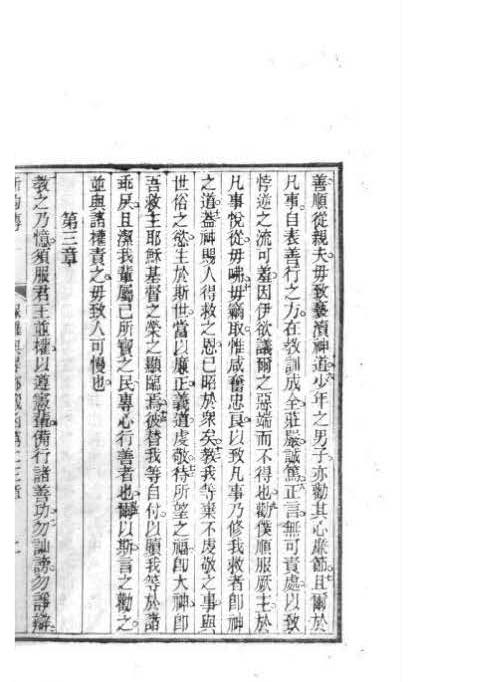 善順從親夫毋致褻瀆神道少年之男子亦勸其心嚴節且爾於
凡事自表善行之方在教訓成全莊嚴誠篤正言無可責處以致
悖逆之流可羞因伊欲議爾之惡端而不得也勸僕順服厥主於
凡事悅從毋咈毋竊取惟咸奮忠良以致凡事乃修我救者即神
之道蓋神賜人得救之恩已昭於眾矣教我等棄不虔敬之事與
世俗之慾主於斯世當以廉正義道虔敬待所望之福即大神即
吾救主耶穌基督之榮之顯臨焉彼替我等自付以贖我等於諸
乖戾且潔我輩屬己所寶之民專心行善者也爾以斯言之勸之
並與諸權責之毋致人可慢也
第三章
教之乃憶須服君王並權以遵憲舊備行諸善功勿訕謗勿諍辯